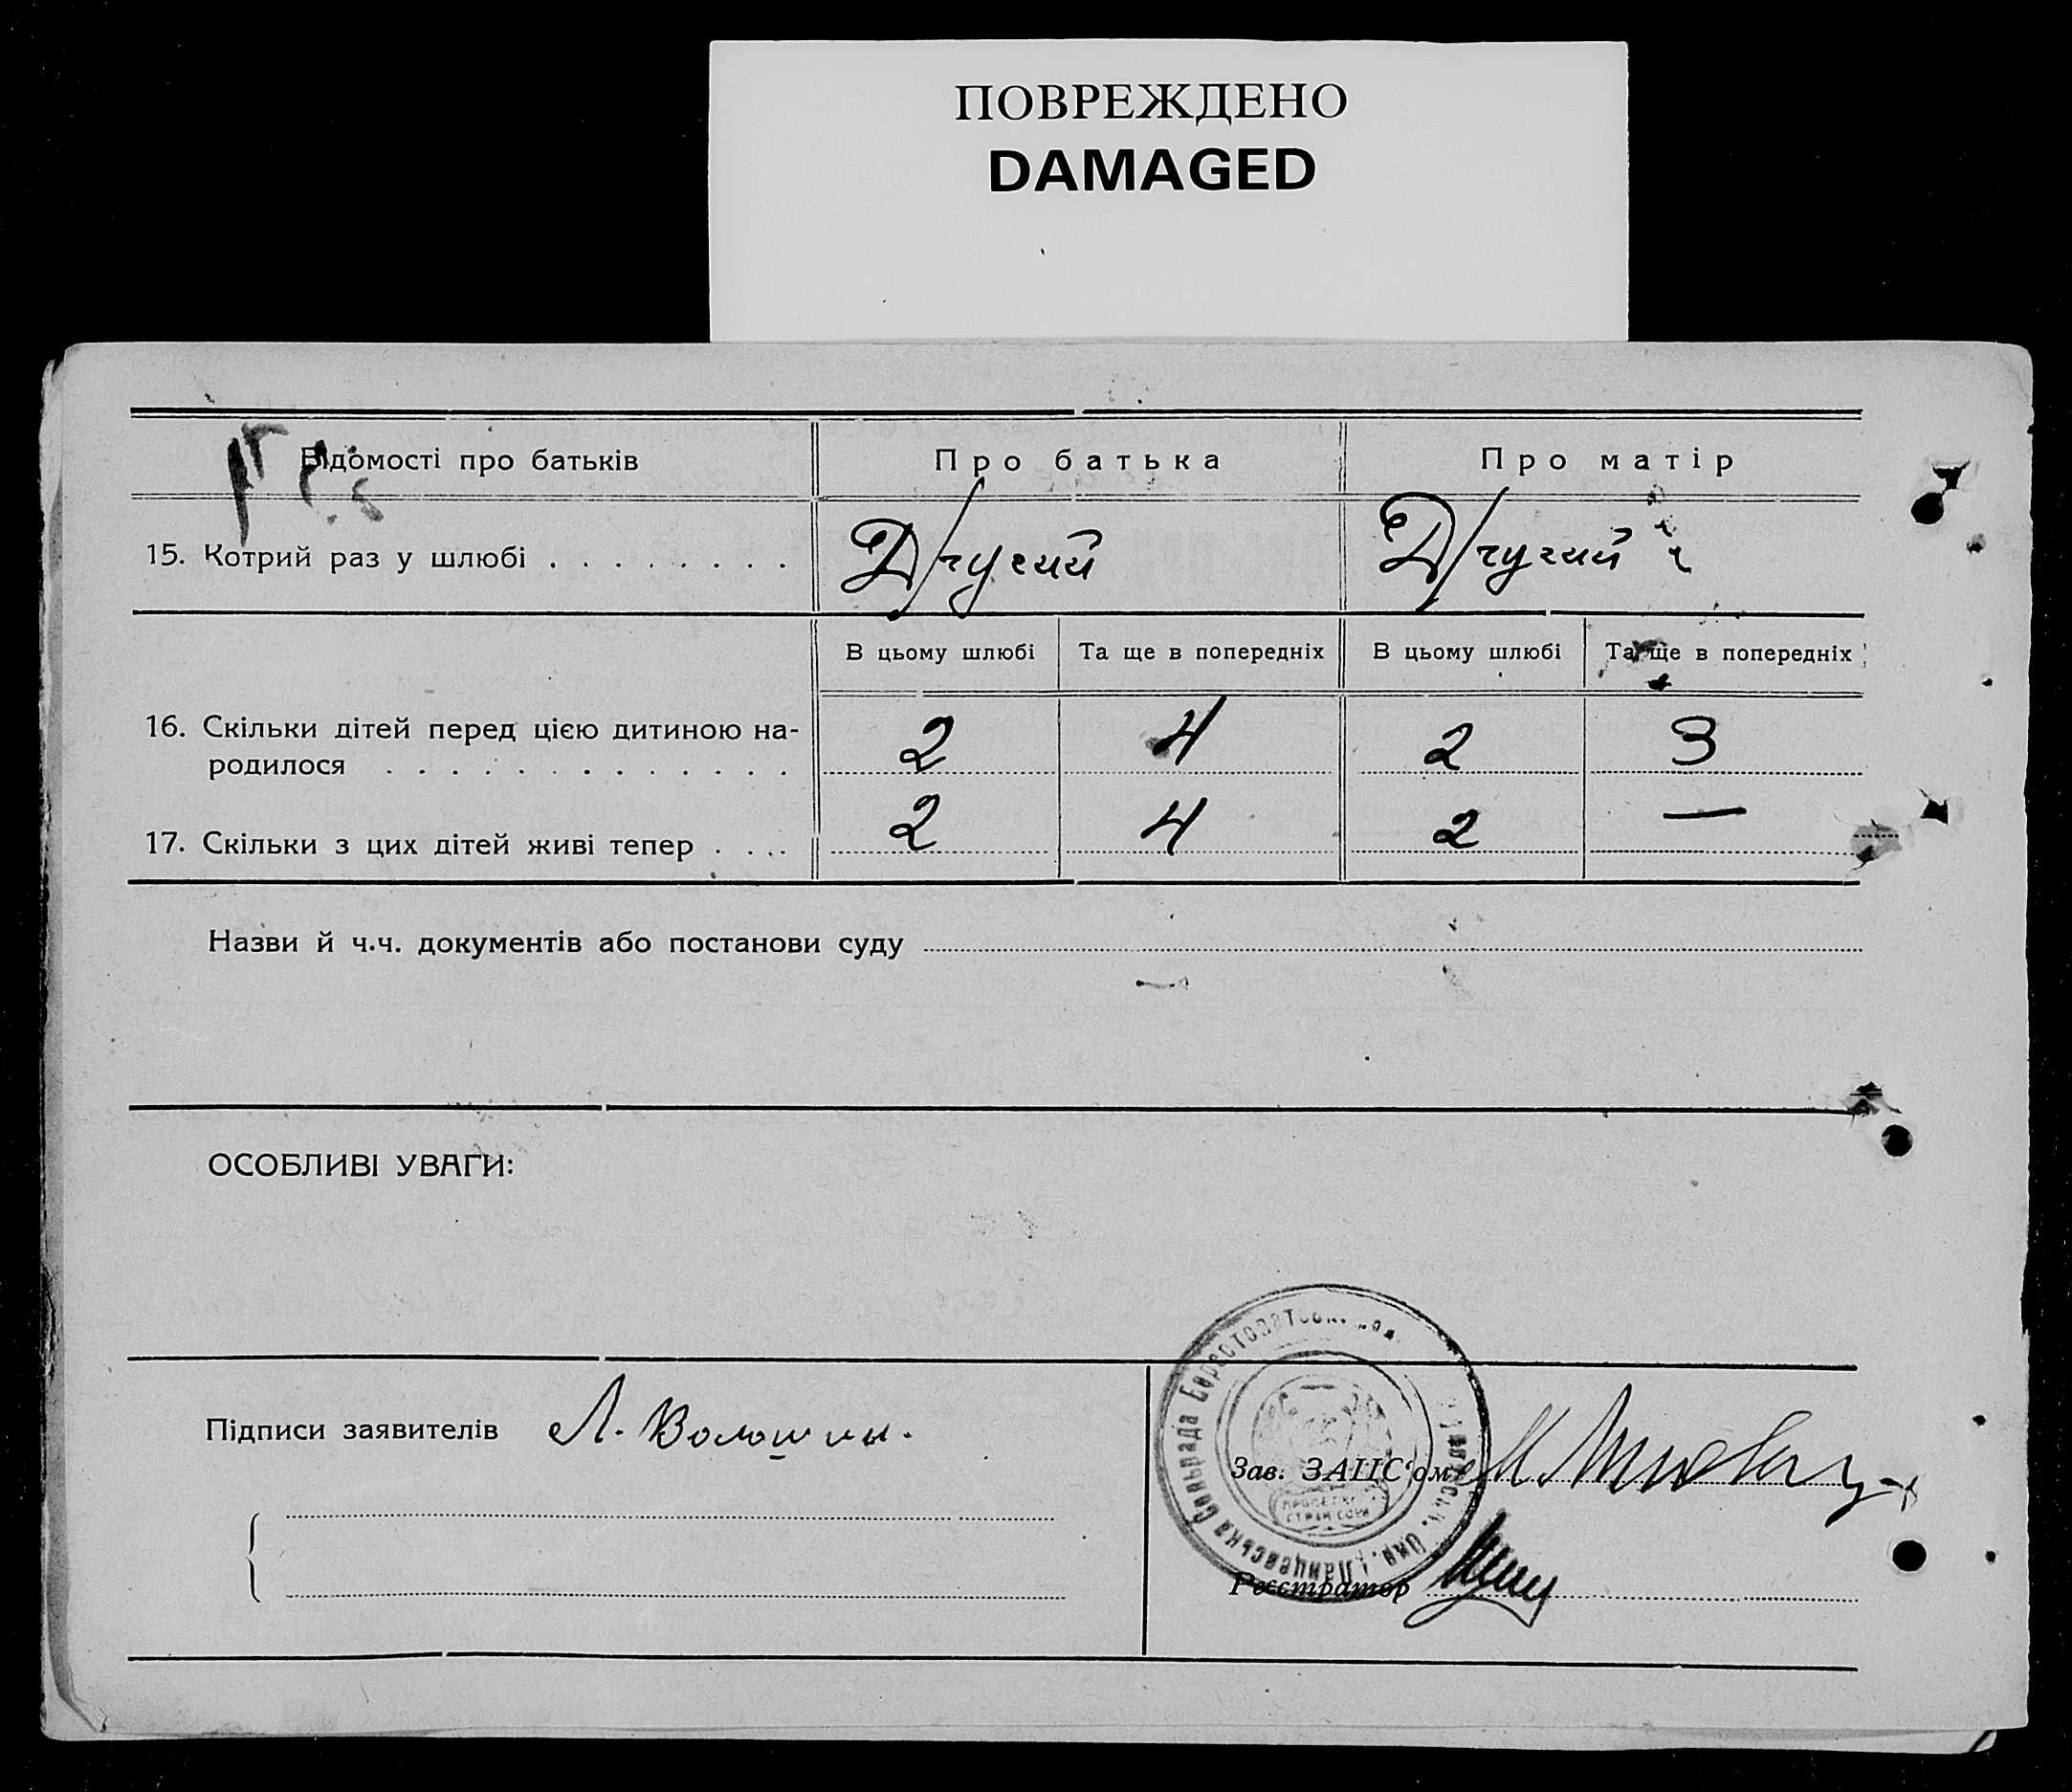 ПОВРЕЖДЕНО
DAMAGED
Відомості про батьків
Про батька
Про матір
15. Котрий раз у шлюбі . . . . . . . .
Другий
Другий
В цьому шлюбі
Та ще в попередніх
В цьому шлюбі
Та ще в попередніх
16. Скільки дітей перед цією дитиною на-
родилося . . . . . . . . . . . .
2
4
2
3
17. Скільки з цих дітей живі тепер . . . .
2
4
2
—
Назви й ч.ч. документів або постанови суду
ОСОБЛИВІ УВАГИ:
Підписи заявителів Л. Волошин.
Зав. ЗАЦС'ом
Реєстратор
Сільрада